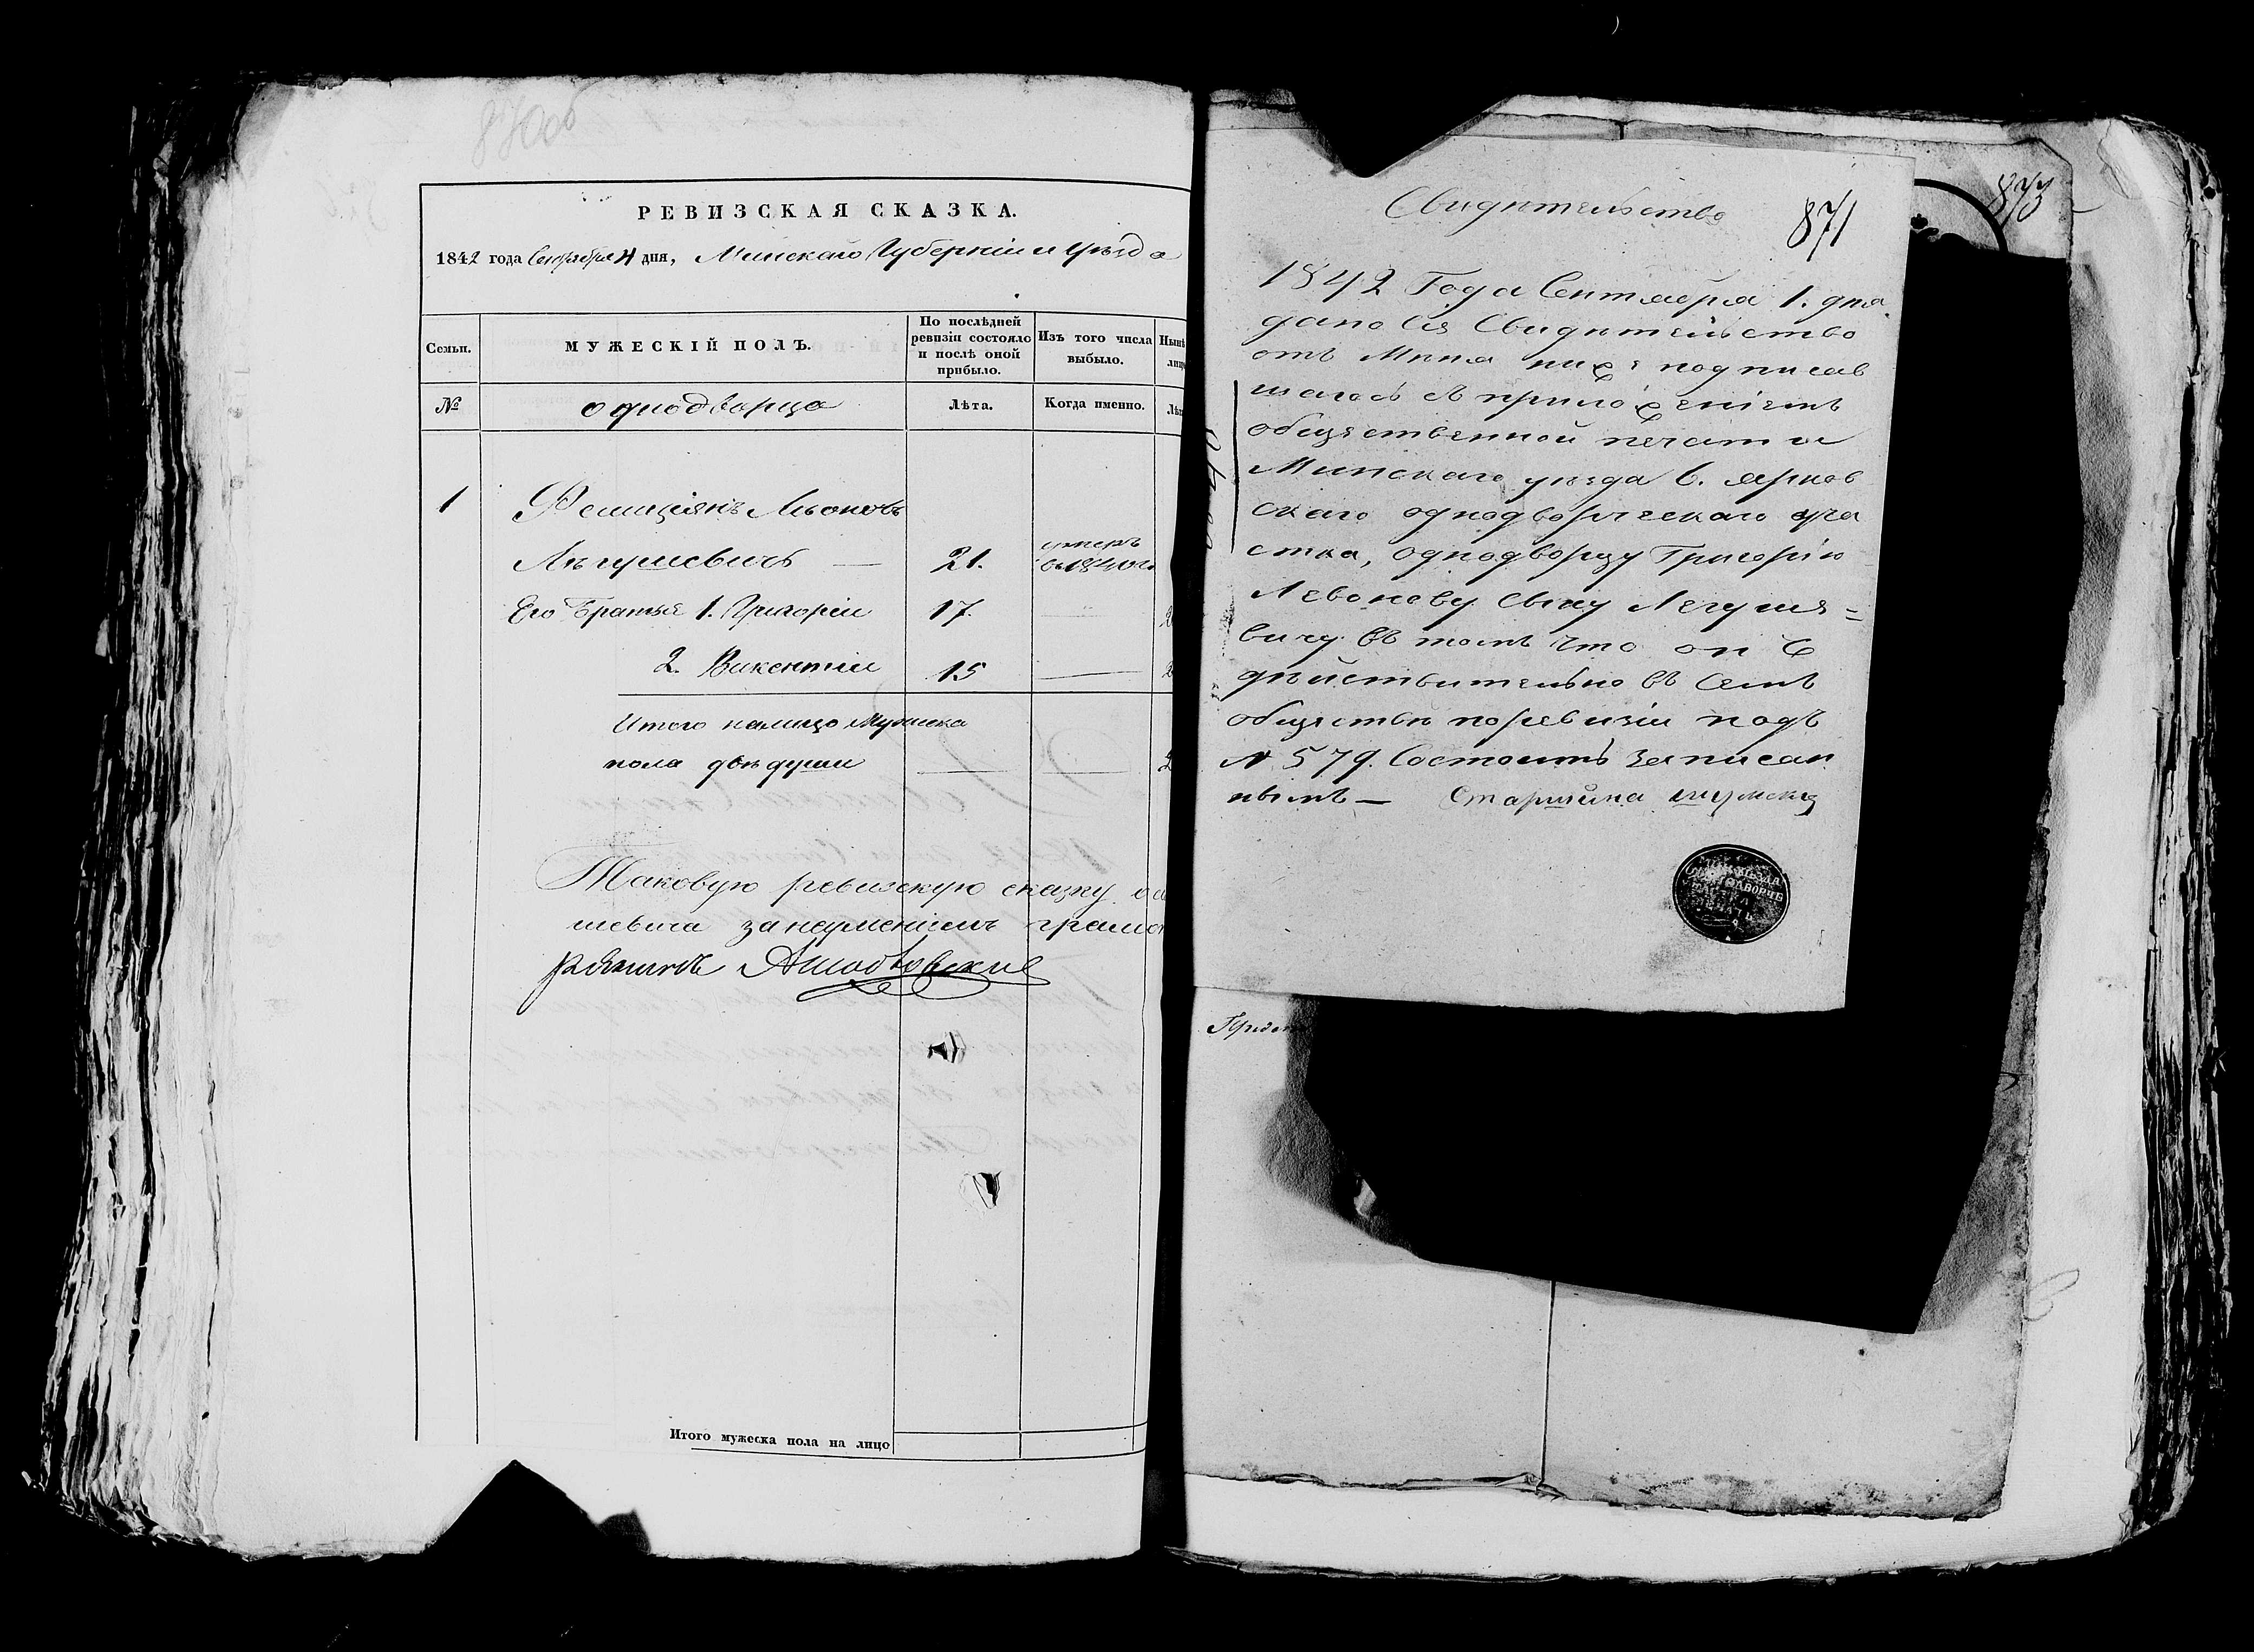 870об
РЕВИЗСКАЯ СКАЗКА.
1842 года Сентября 4 дня, Минской Губерніи и Уѣзда
Семьи.
МУЖЕСКІЙ ПОЛЪ.
По послѣдней
ревизіи состояло
и послѣ оной
прибыло.
Изъ того числа
выбыло.
№
однодворца
Лѣта.
Когда именно.
1
Фелиціянъ Леоновъ
Лягушевичъ — 21. умеръ
въ 1840 г.
Его Братья 1. Григорій 17.
2. Викентій 15
Итого налицо Мужеска
пола двѣ души
Таковую ревизскую сказку
шевича за неумѣніемъ грамот
Итого мужеска пола на лицо
873
Свидѣтельство
871
1842 Года Сентября 1. дня
дано сіе Свидѣтельство
отъ Мѣня ниже подписав
шагось съ приложеніемъ
общественной печати
Минскаго уѣзда
скаго однодворческаго уча
стка, однодворцу Григорію
Левонову сыну Легуше=
вичу въ томъ что онъ
дѣйствительно въ семъ
обществѣ по ревизіи подъ
№ 579. Состоитъ записан
нымъ — Старшина